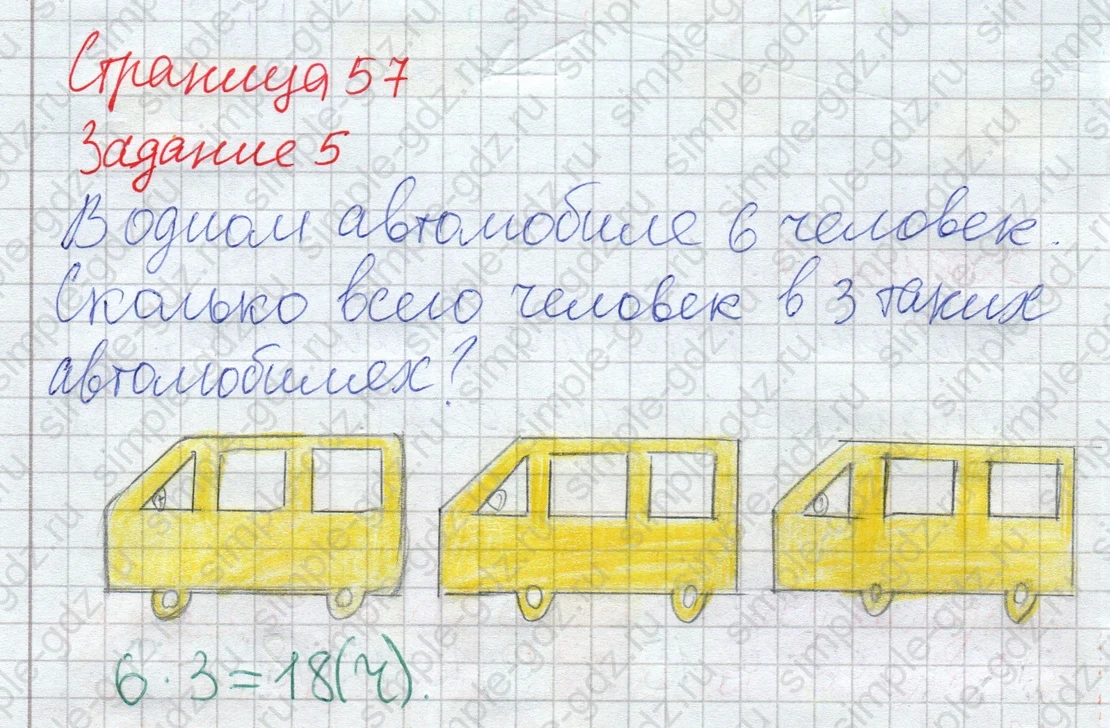 Страница 57
Задание 5
В одном автомобиле 6 человек.
Сколько всего человек в 3 таких
автомобилях?
6 · 3 = 18 (ч).
simple-gdz.ru